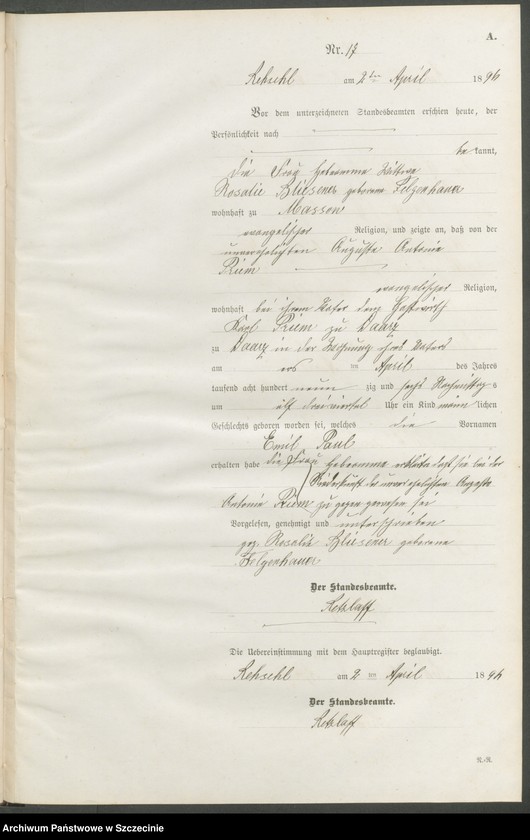 A.
Nr. 17
Rehsehl am 2 ten April 1896
Vor dem unterzeichneten Standesbeamten erschien heute, der
Persönlichkeit nach
be kannt,
die Frau Hebeamme Wittwe
Rosalie Bliesener geborene Felgenhauer
wohnhaft zu Massow
evangelischer Religion, und zeigte an, daß von der
unverehelichten Auguste Antonie
Priem
evangelischer Religion,
wohnhaft bei ihrem Vater dem Gastwirth
Karl Priem zu Daarz
zu Daarz in der Wohnung ihres Vaters
am ersten April des Jahres
tausend acht hundert neun zig und sechs Nachmittag s
um elf dreiviertel Uhr ein Kind männ lichen
Geschlechts geboren worden sei, welches die Vornamen
Emil Paul
erhalten habe die Frau Hebeamme erklärte daß sie bei der
Niederkunft der unverehelichten Auguste
Antonie Priem zugegen gewesen sei
Vorgelesen, genehmigt und unterschrieben
gez. Rosalie Bliesener geborene
Felgenhauer
Der Standesbeamte.
Retzlaff
Die Uebereinstimmung mit dem Hauptregister beglaubigt.
Rehsehl am 2 ten April 1896
Der Standesbeamte.
Retzlaff
Archiwum Państwowe w Szczecinie